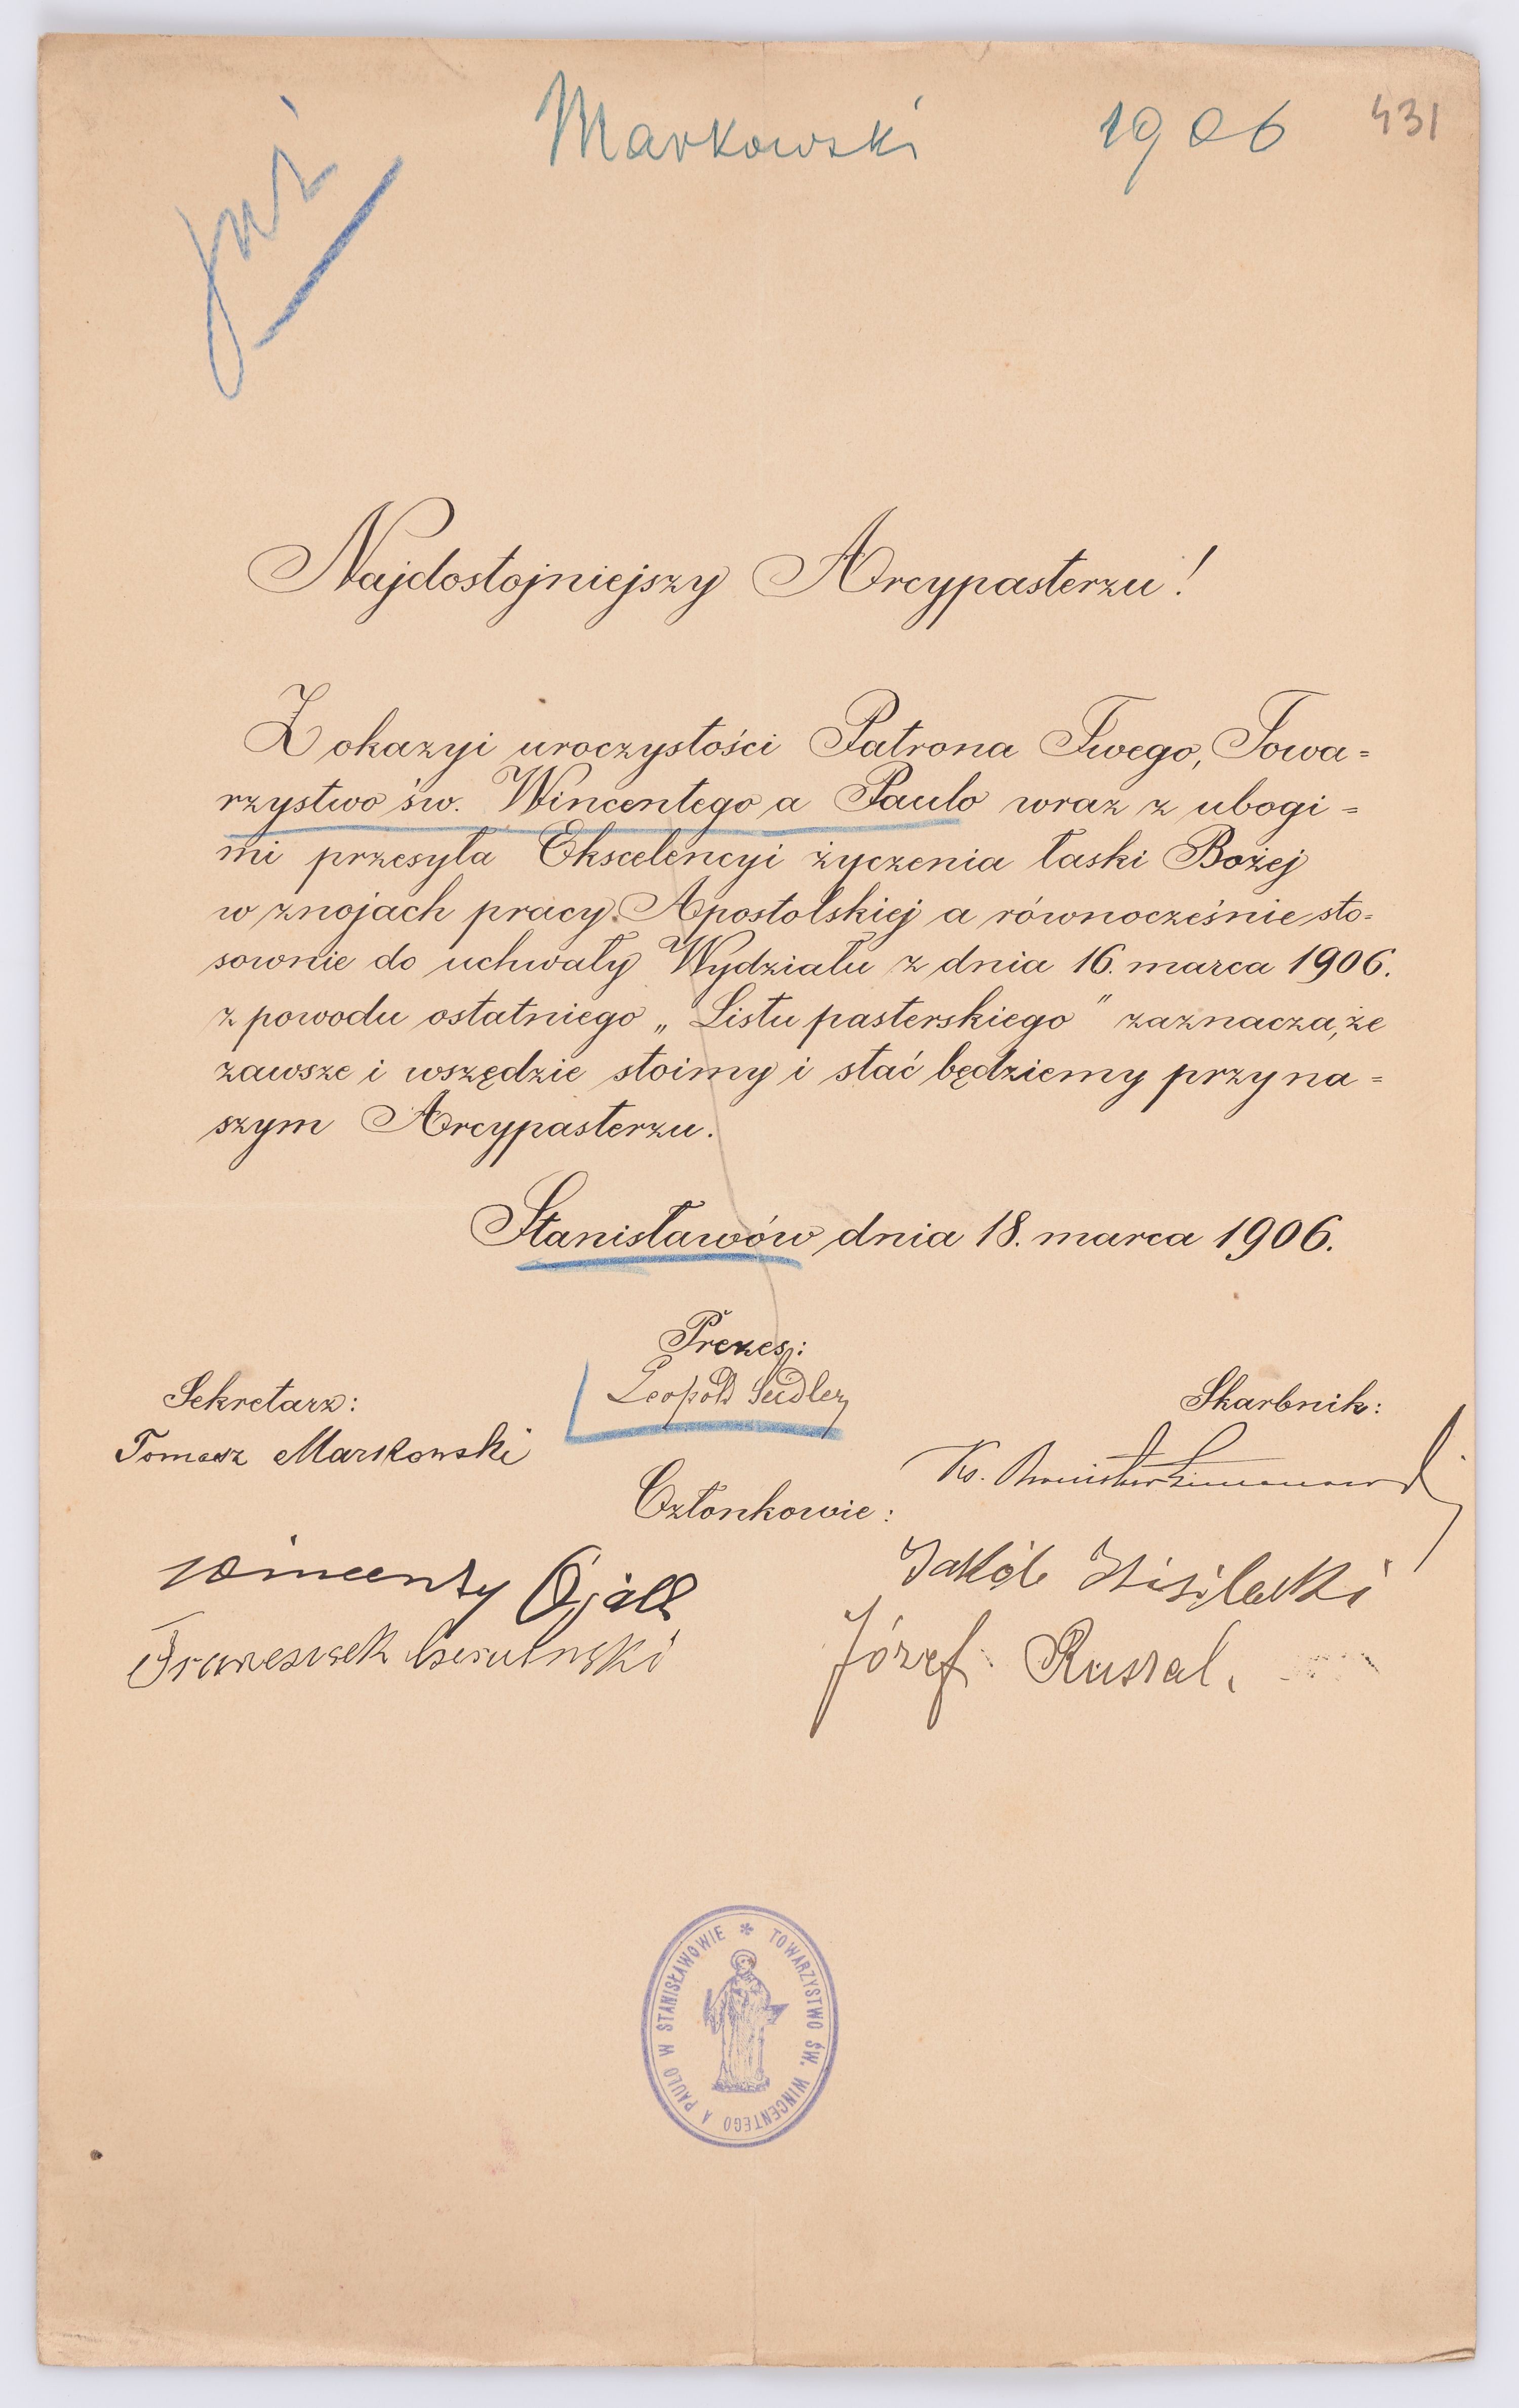 Markowski 1906 431
już
Najdostojniejszy Arcypasterzu!
Z okazyi uroczystości Patrona Twego, Towa=
rzystwo św. Wincentego a Paulo wraz z ubogi=
mi przesyła Ekscelencyi życzenia łaski Bożej
w znojach pracy Apostolskiej a równocześnie sto=
sownie do uchwały Wydziału z dnia 16. marca 1906.
z powodu ostatniego „Listu pasterskiego" zaznacza, że
zawsze i wszędzie stoimy i stać będziemy przy na=
szym Arcypasterzu.
Stanisławów dnia 18. marca 1906.
Prezes:
Leopold
Sekretarz:
Tomasz Markowski
Skarbnik:
Ks.
Członkowie:
Wincenty
Jakób
Franciszek
Józef
TOWARZYSTWO ŚW. WINCENTEGO A PAULO W STANISŁAWOWIE *